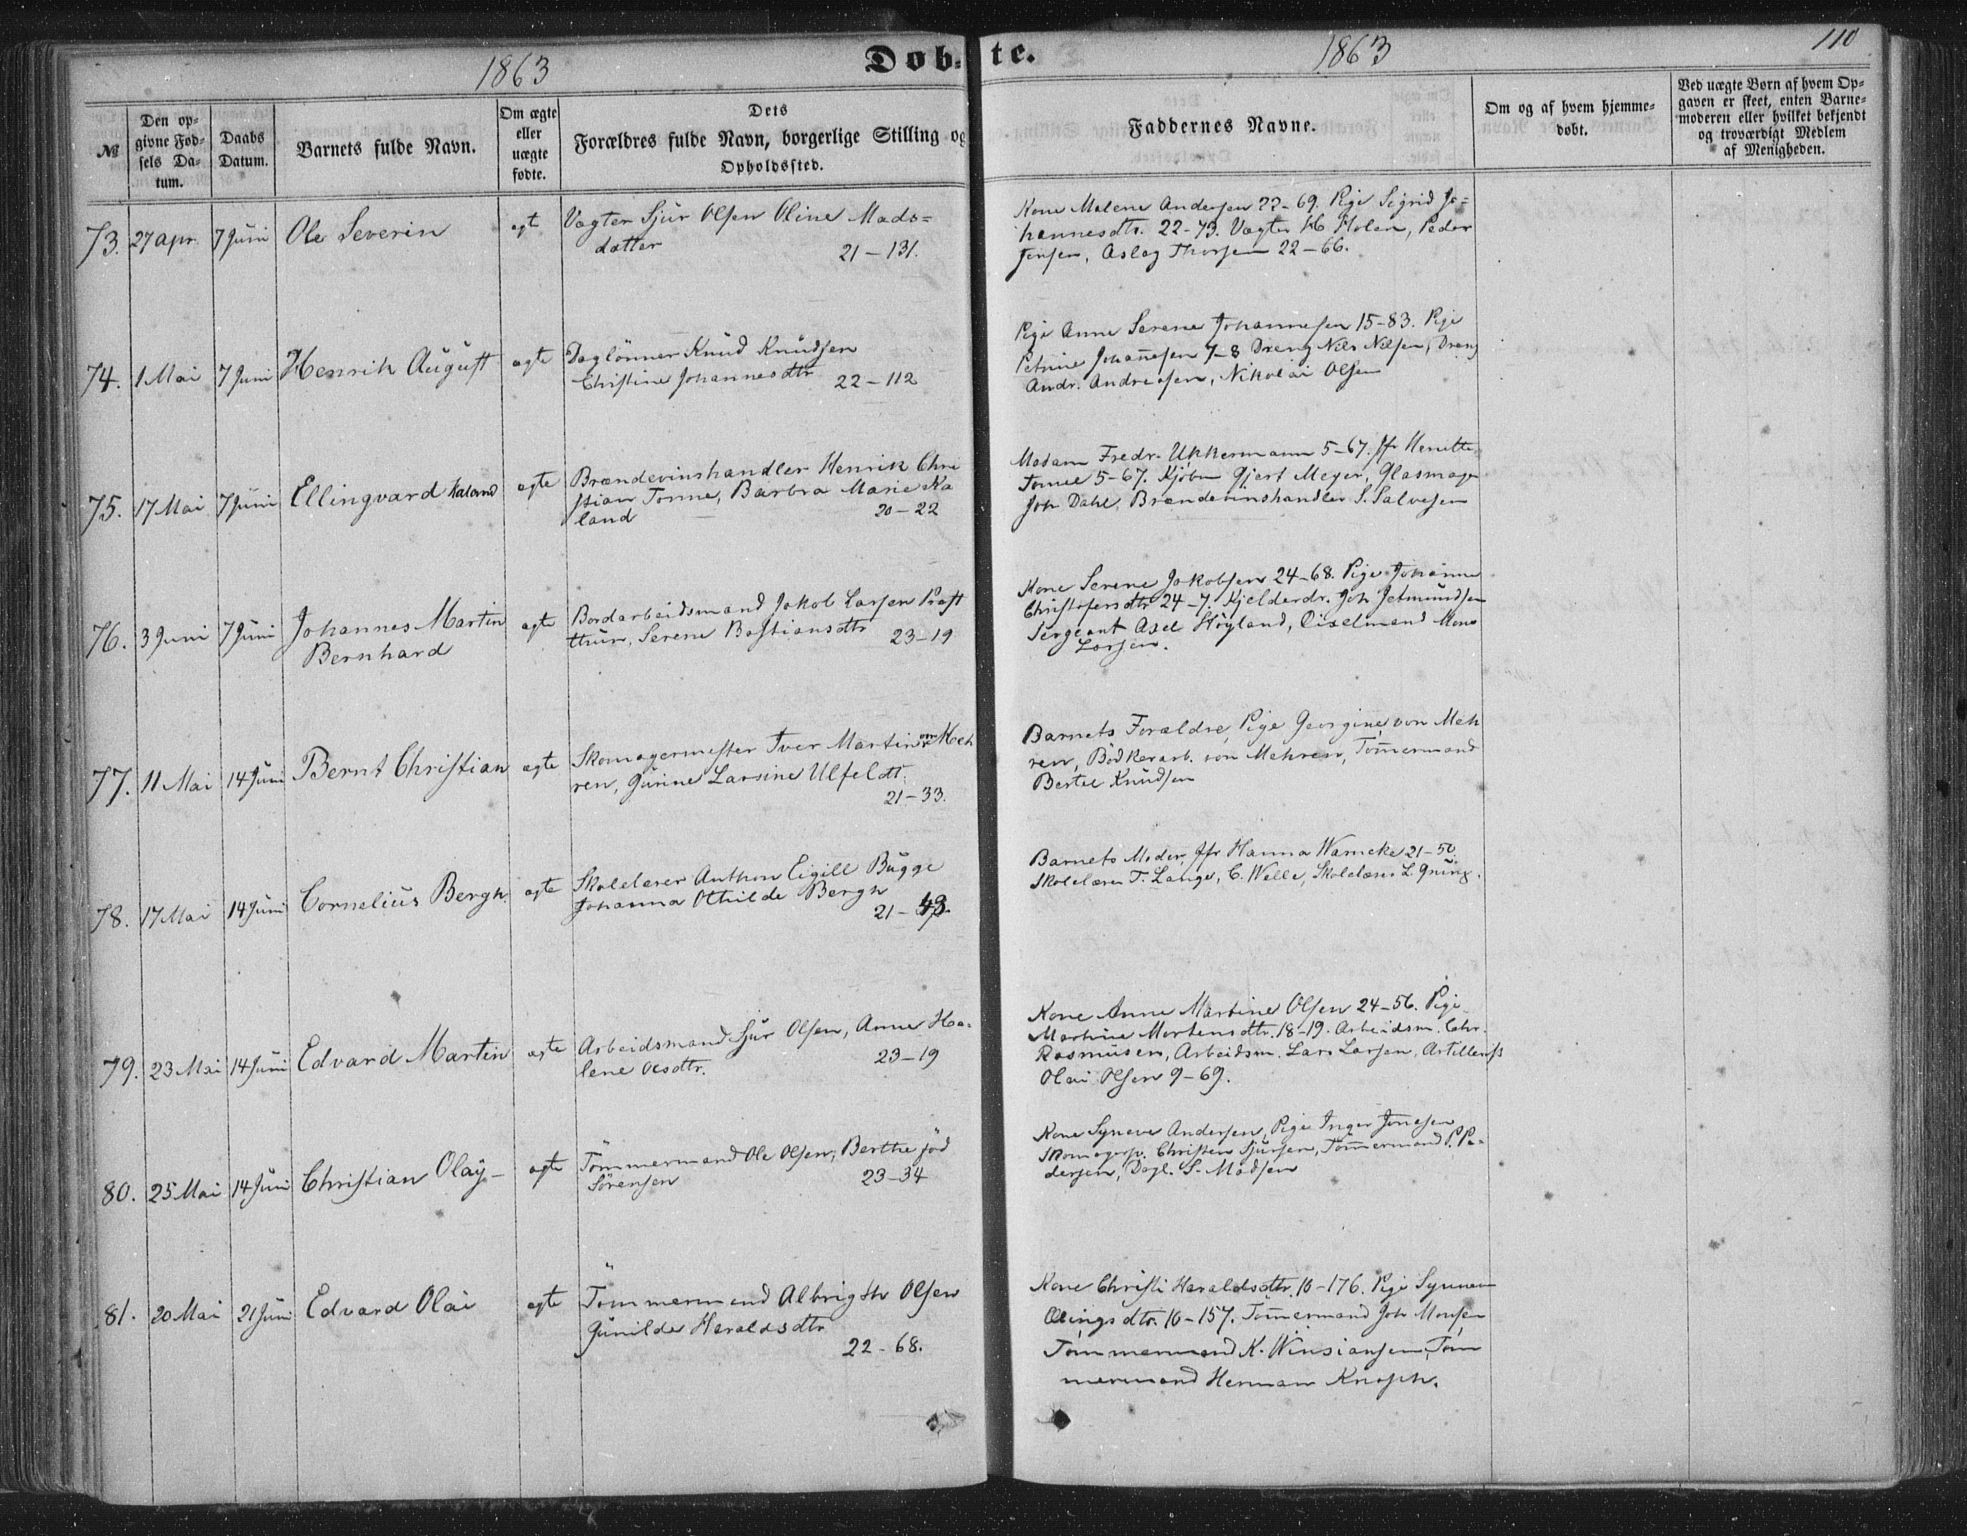 1863 Døb-
te. 1863 110
№
Den opgivne Fødsels Datum.
Daabs Datum.
Barnets fulde Navn.
Om ægte eller uægte fødte.
Dets
Forældres fulde Navn, borgerlige Stilling og
Opholdssted.
Faddernes Navne.
Om og af hvem hjemmedøbt.
Ved uægte Børn af hvem Op-
gaven er skeet, enten Barne-
moderen eller hvilket bekjendt
og troværdigt Medlem
af Menigheden.
73. 27 apr. 7 Juni Ole Severin egt Vægter Sjur Olsen Oline Mads=
datter
21-131.
Kone Malene Andersen 22-69. Pige Sigrid Jo=
hannesdtr. 22-73. Vægter Holen, Peder
Jensen, Aslag Thorsen 22-66.
74. 1 Mai 7 Juni Henrik August egte Daglönner Knud Knudsen
Christine Johannesdtr 22-112
Pige Anne Serene Johannesen 15-83. Pige
Petrine Johanesen 7-8 Dreng Nils Nilsen, Dreng
Andr. Andreasen, Nikolai Olsen
75. 17 Mai 7 Juni Ellingvard Kaland egte Brændevinshandler Henrik Chri
stian Tonne, Barbra Marie Ka
land 20-22
Madam Fredr. Ukkermann 5-67. Jfr Henette
Tonne 5-67. Kjöbm Gjert Meyer, Glasmager
Joh Dahl, Brændevinshandler S. Salvesen
76. 3 Juni 7 Juni Johannes Martin
Bernhard
egte Bordarbeidsmand Jakob Larsen Prest
thun, Serene Bastiansdtr 23-19
Kone Serene Jakobsen 24-68. Pige Johanne
Christofersdtr 24-7. Kjelderdr. Joh Jetmundsen
Sergeant Axel Höyland, Diselmand Mons
Larsen.
77. 11 Mai 14 Juni Bernt Christian egte Skomagermester Iver Martin von Meh
ren, Gurine Larsine Ulfeldt
21-33.
Barnets Forældre, Pige Georgine von Meh
ren, Bödkerarb. von Mehren, Tömermand
Bertel Knudsen
78. 17 Mai 14 Juni Cornelius Bergh. egte Skolelærer Anthon Eigill Bugge
Johanna Othilde Bergh
21-43.
Barnets Moder, Jfr Hanna Warncke 21-50
Skolelærer T. Lange, C. Welle, Skolelærer L Grung.
79. 23 Mai 14 Juni Edvard Martin egte Arbeidsmand Sjur Olsen, Anne Ha=
lene Olsdtr. 23-19
Kone Anne Martine Olsen 24-56. Pige
Martine Mortensdtr. 18-19. Arbeidsm. Chr.
Rasmusen, Arbeidsm. Lars Larsen, Artillerist
Olai Olsen 9-69.
80. 25 Mai 14 Juni Christian Olaÿ- egte Tömmermand Ole Olsen, Berthe föd
Sörensen 23-34
Kone Syneve Andersen, Pige Inger Jonesen
Skomagersv. Christen Sjursen, Tömermand P. Pe-
dersen, Dagl. S. Madsen
81. 20 Mai 21 Juni Edvard Olai egte Tömmermand Albrigth Olsen
Gunilde Haraldsdtr
22-68.
Kone Christi Haraldsdtr. 16-176. Pige Synneve
Ellingsdtr. 16-157. Tömermand Joh Monsen
Tömmermand K. Winsiansen, Töm
mermand Herman Knoph.